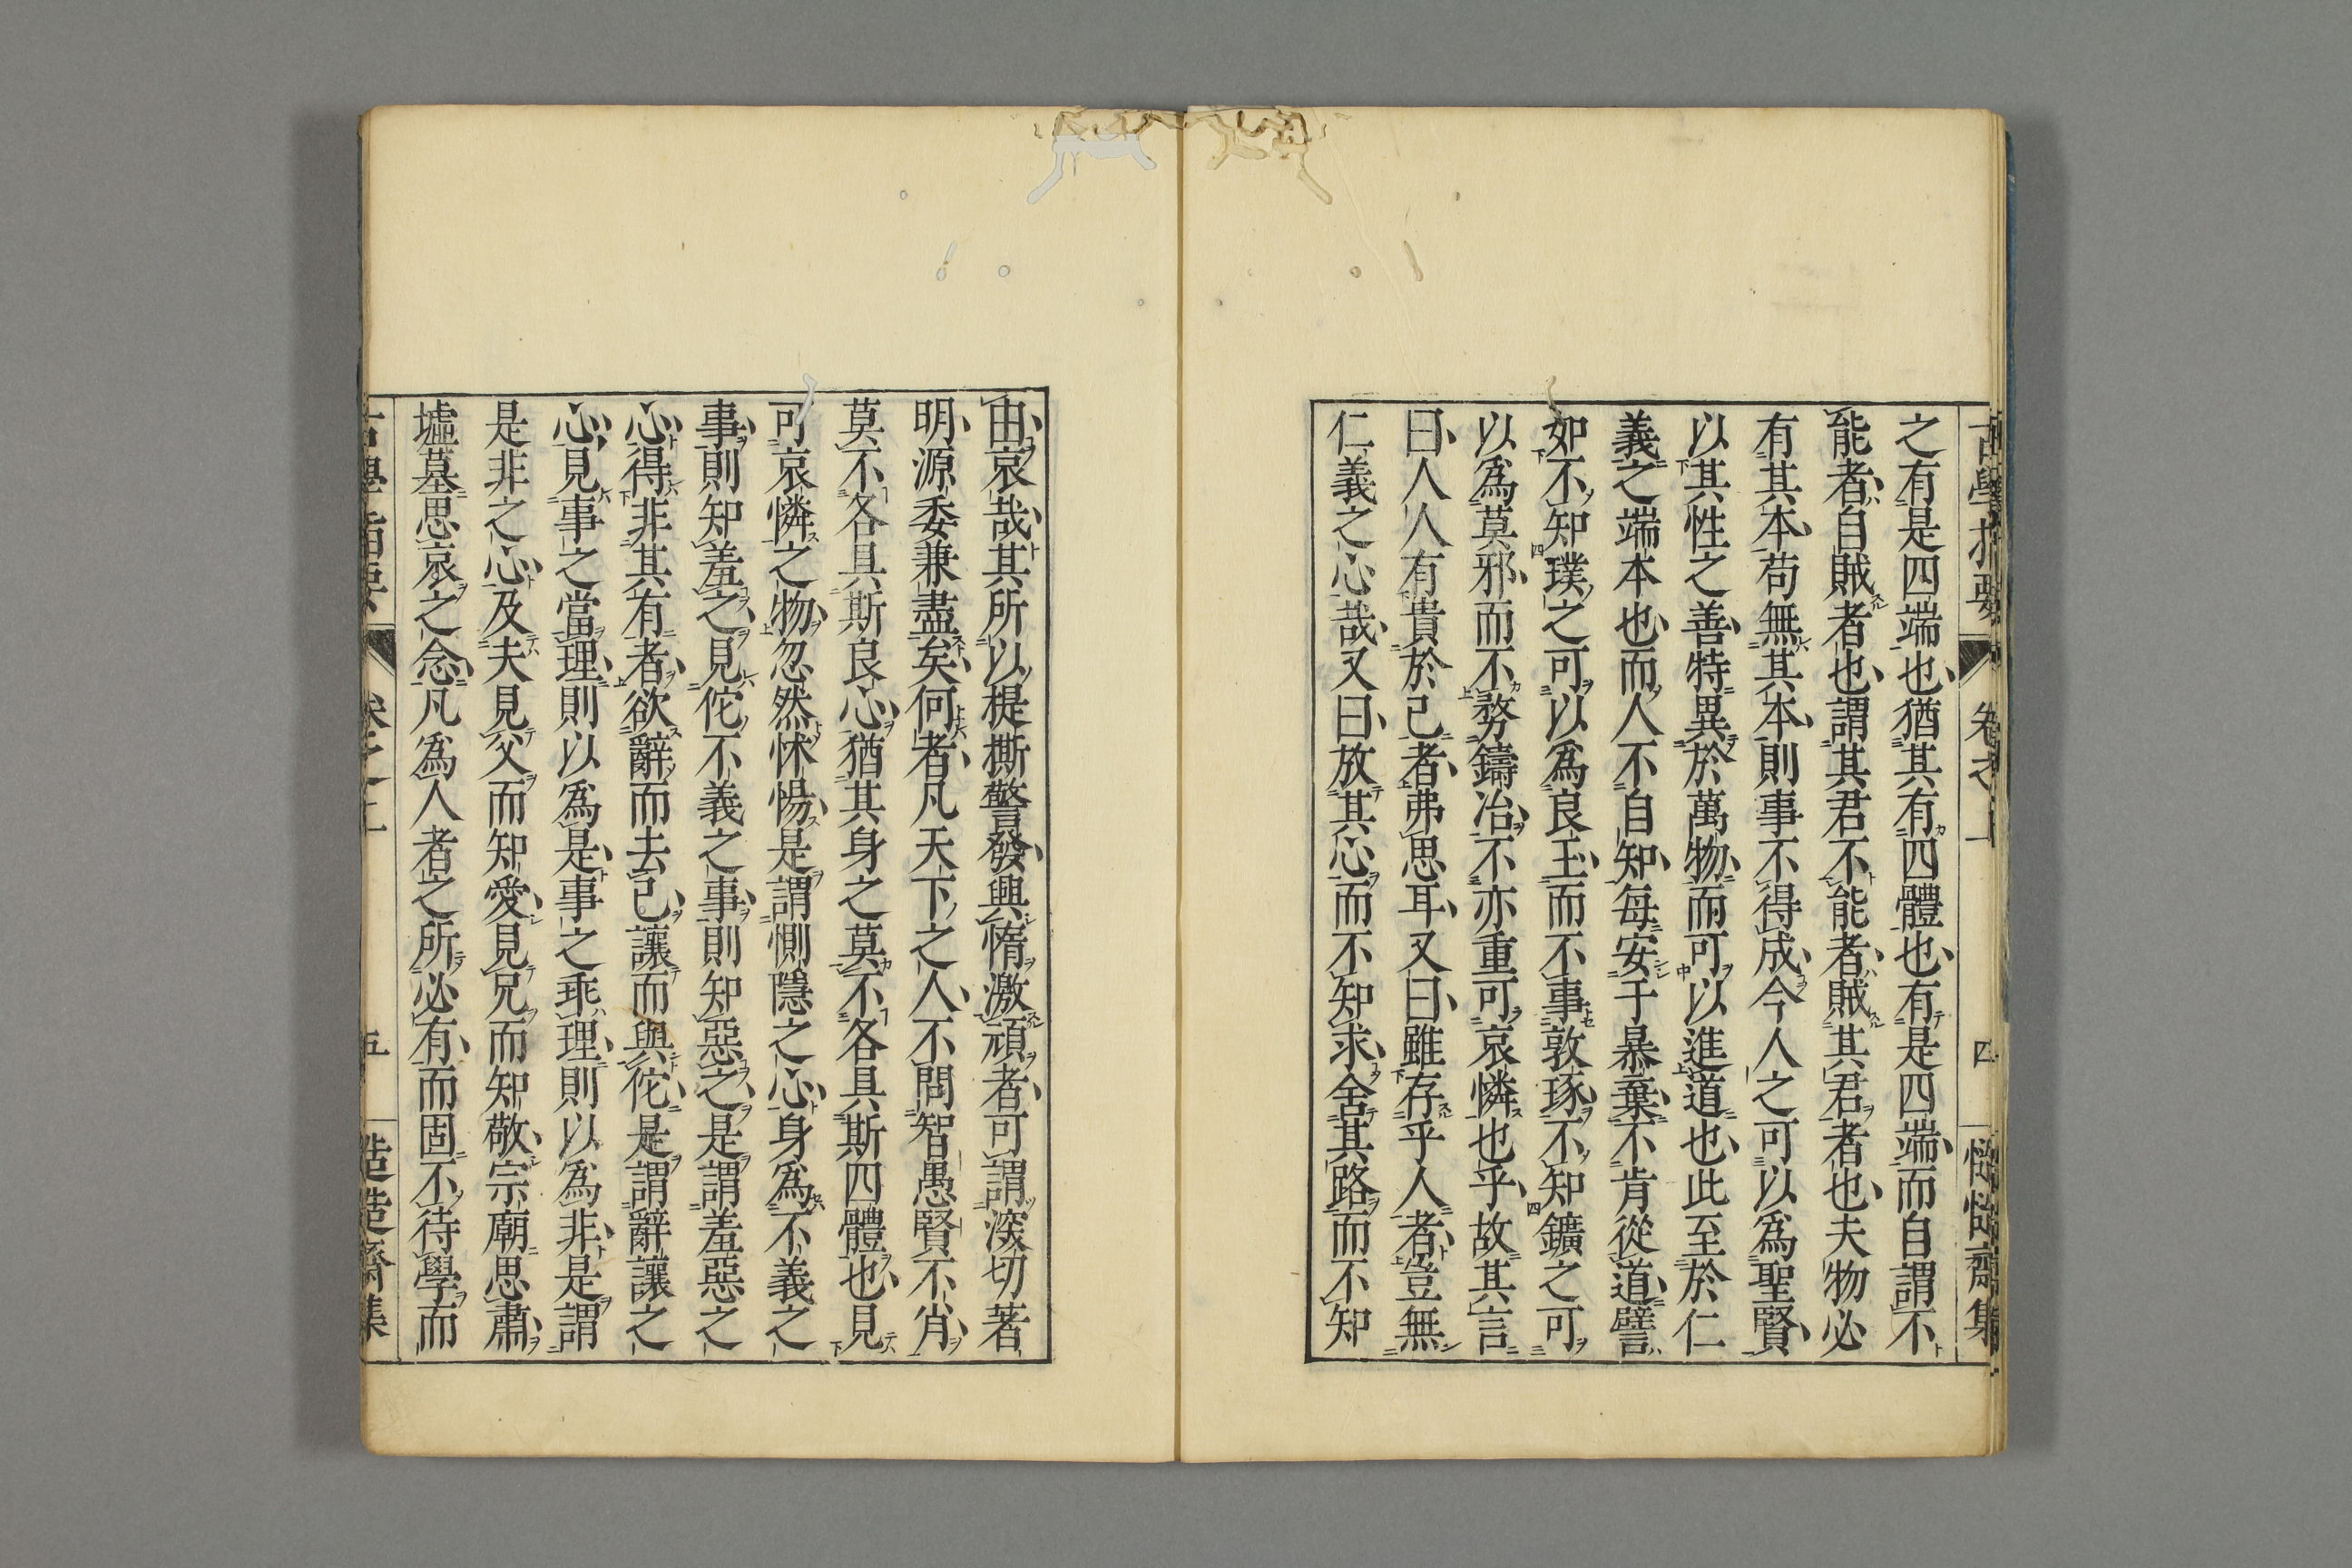 之有是四端也猶其有四體也有是四端而自謂不
能者自賊者也謂其君不能者賊其君者也夫物必
有其本苟無其本則事不得成今人之可以爲聖賢
以其性之善特異於萬物而可以進道也此至於仁
義之端本也而人不自知每安于暴棄不肯從道譬
如不知璞之可以爲良玉而不事敦琢不知鑛之可
以爲莫邪而不務鑄冶不亦重可哀憐也乎故其言
曰人人有貴於己者弗思耳又曰雖存乎人者豈無
仁義之心哉又曰放其心而不知求舍其路而不知
由哀哉其所以提撕警發興惰激頑者可謂深切著
明源委兼盡矣何者凡天下之人不問智愚賢不肖
莫不各具斯良心猶其身之莫不各具斯四體也見
可哀憐之物忽然怵惕是謂惻隱之心身爲不義之
事則知羞之見佗不義之事則知惡之是謂羞惡之
心得非其有者欲辭而去己讓而與佗是謂辭讓之
心見事之當理則以爲是事之乖理則以爲非是謂
是非之心及夫見父而知愛見兄而知敬宗廟思肅
墟墓思哀之念凡爲人者之所必有而固不待學而